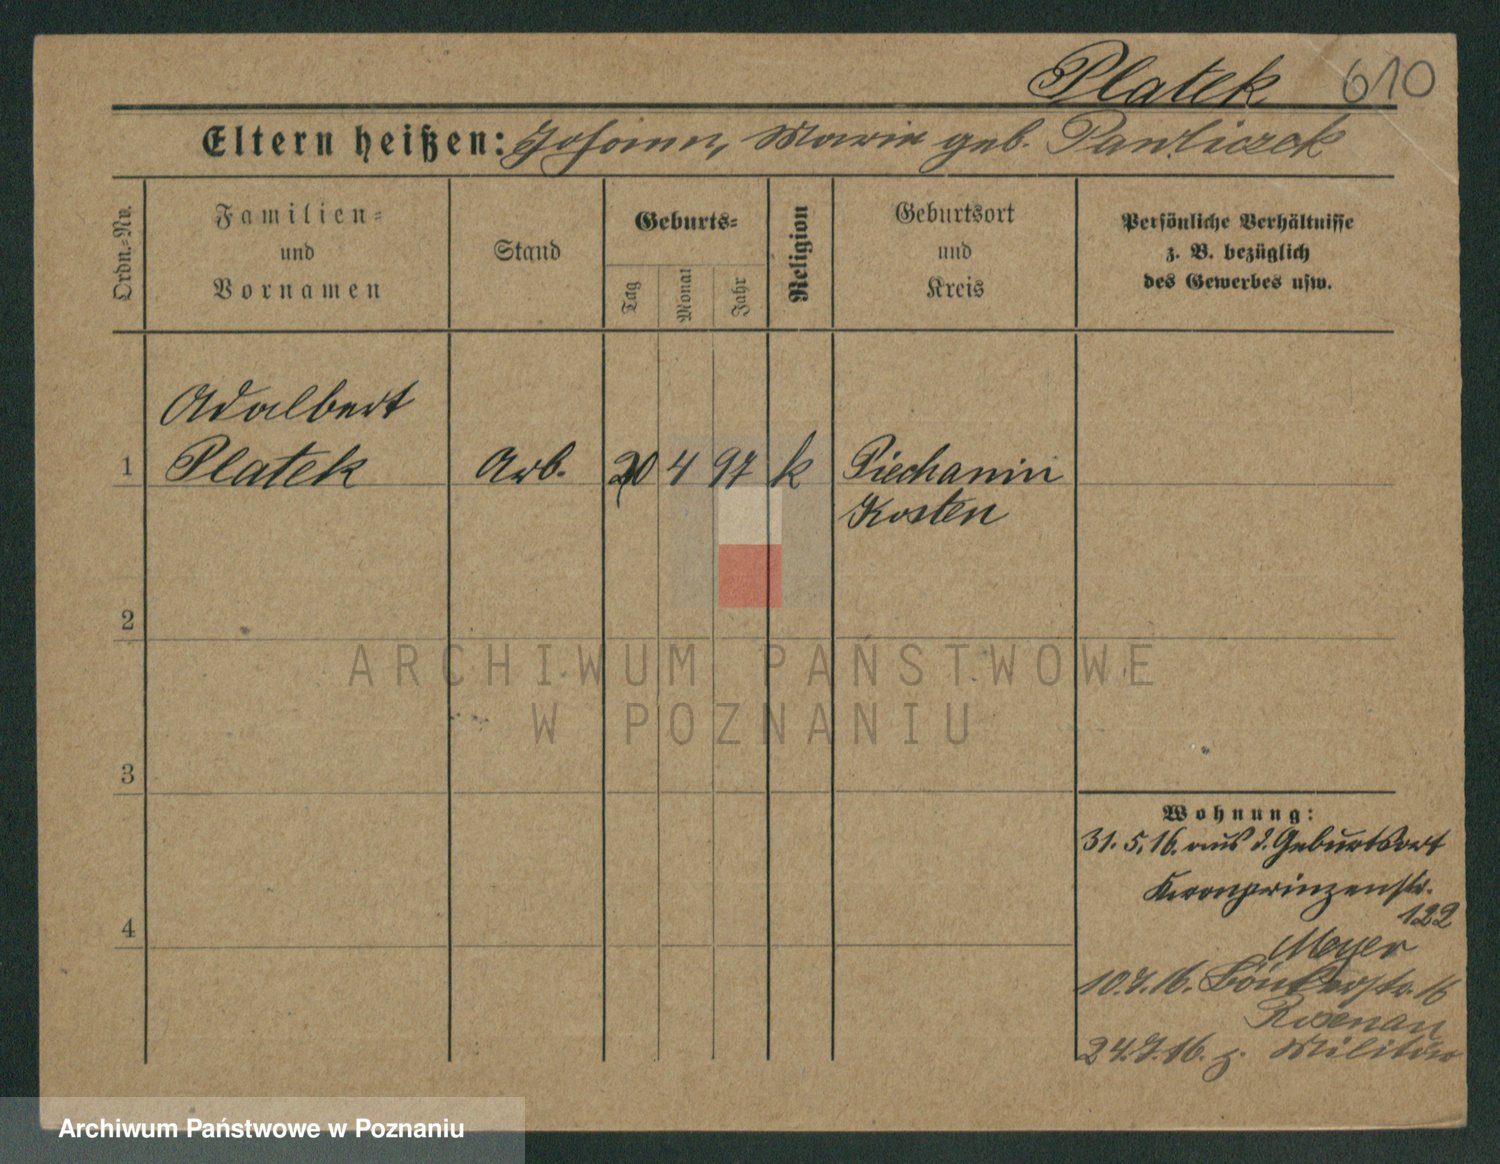 Platek 610
Eltern heißen: Johann, Marie geb. Pawliczek
Ordn.=Nr.
Familien=
und
Vornamen
Stand
Geburts=
Tag
Monat
Jahr
Religion
Geburtsort
und
Kreis
Persönliche Verhältnisse
z. B. bezüglich
des Gewerbes usw.
Adalbert
1 Platek Arb. 20 4 97 k Piechanin
Kosten
2
ARCHIWUM PAŃSTWOWE
W POZNANIU
3
Wohnung:
31.5.16. aus d. Geburtsort
Kronprinzenstr.
122
4
Meyer
10.7.16. 16
Rosenau
24.7.16. z. Militär
Archiwum Państwowe w Poznaniu